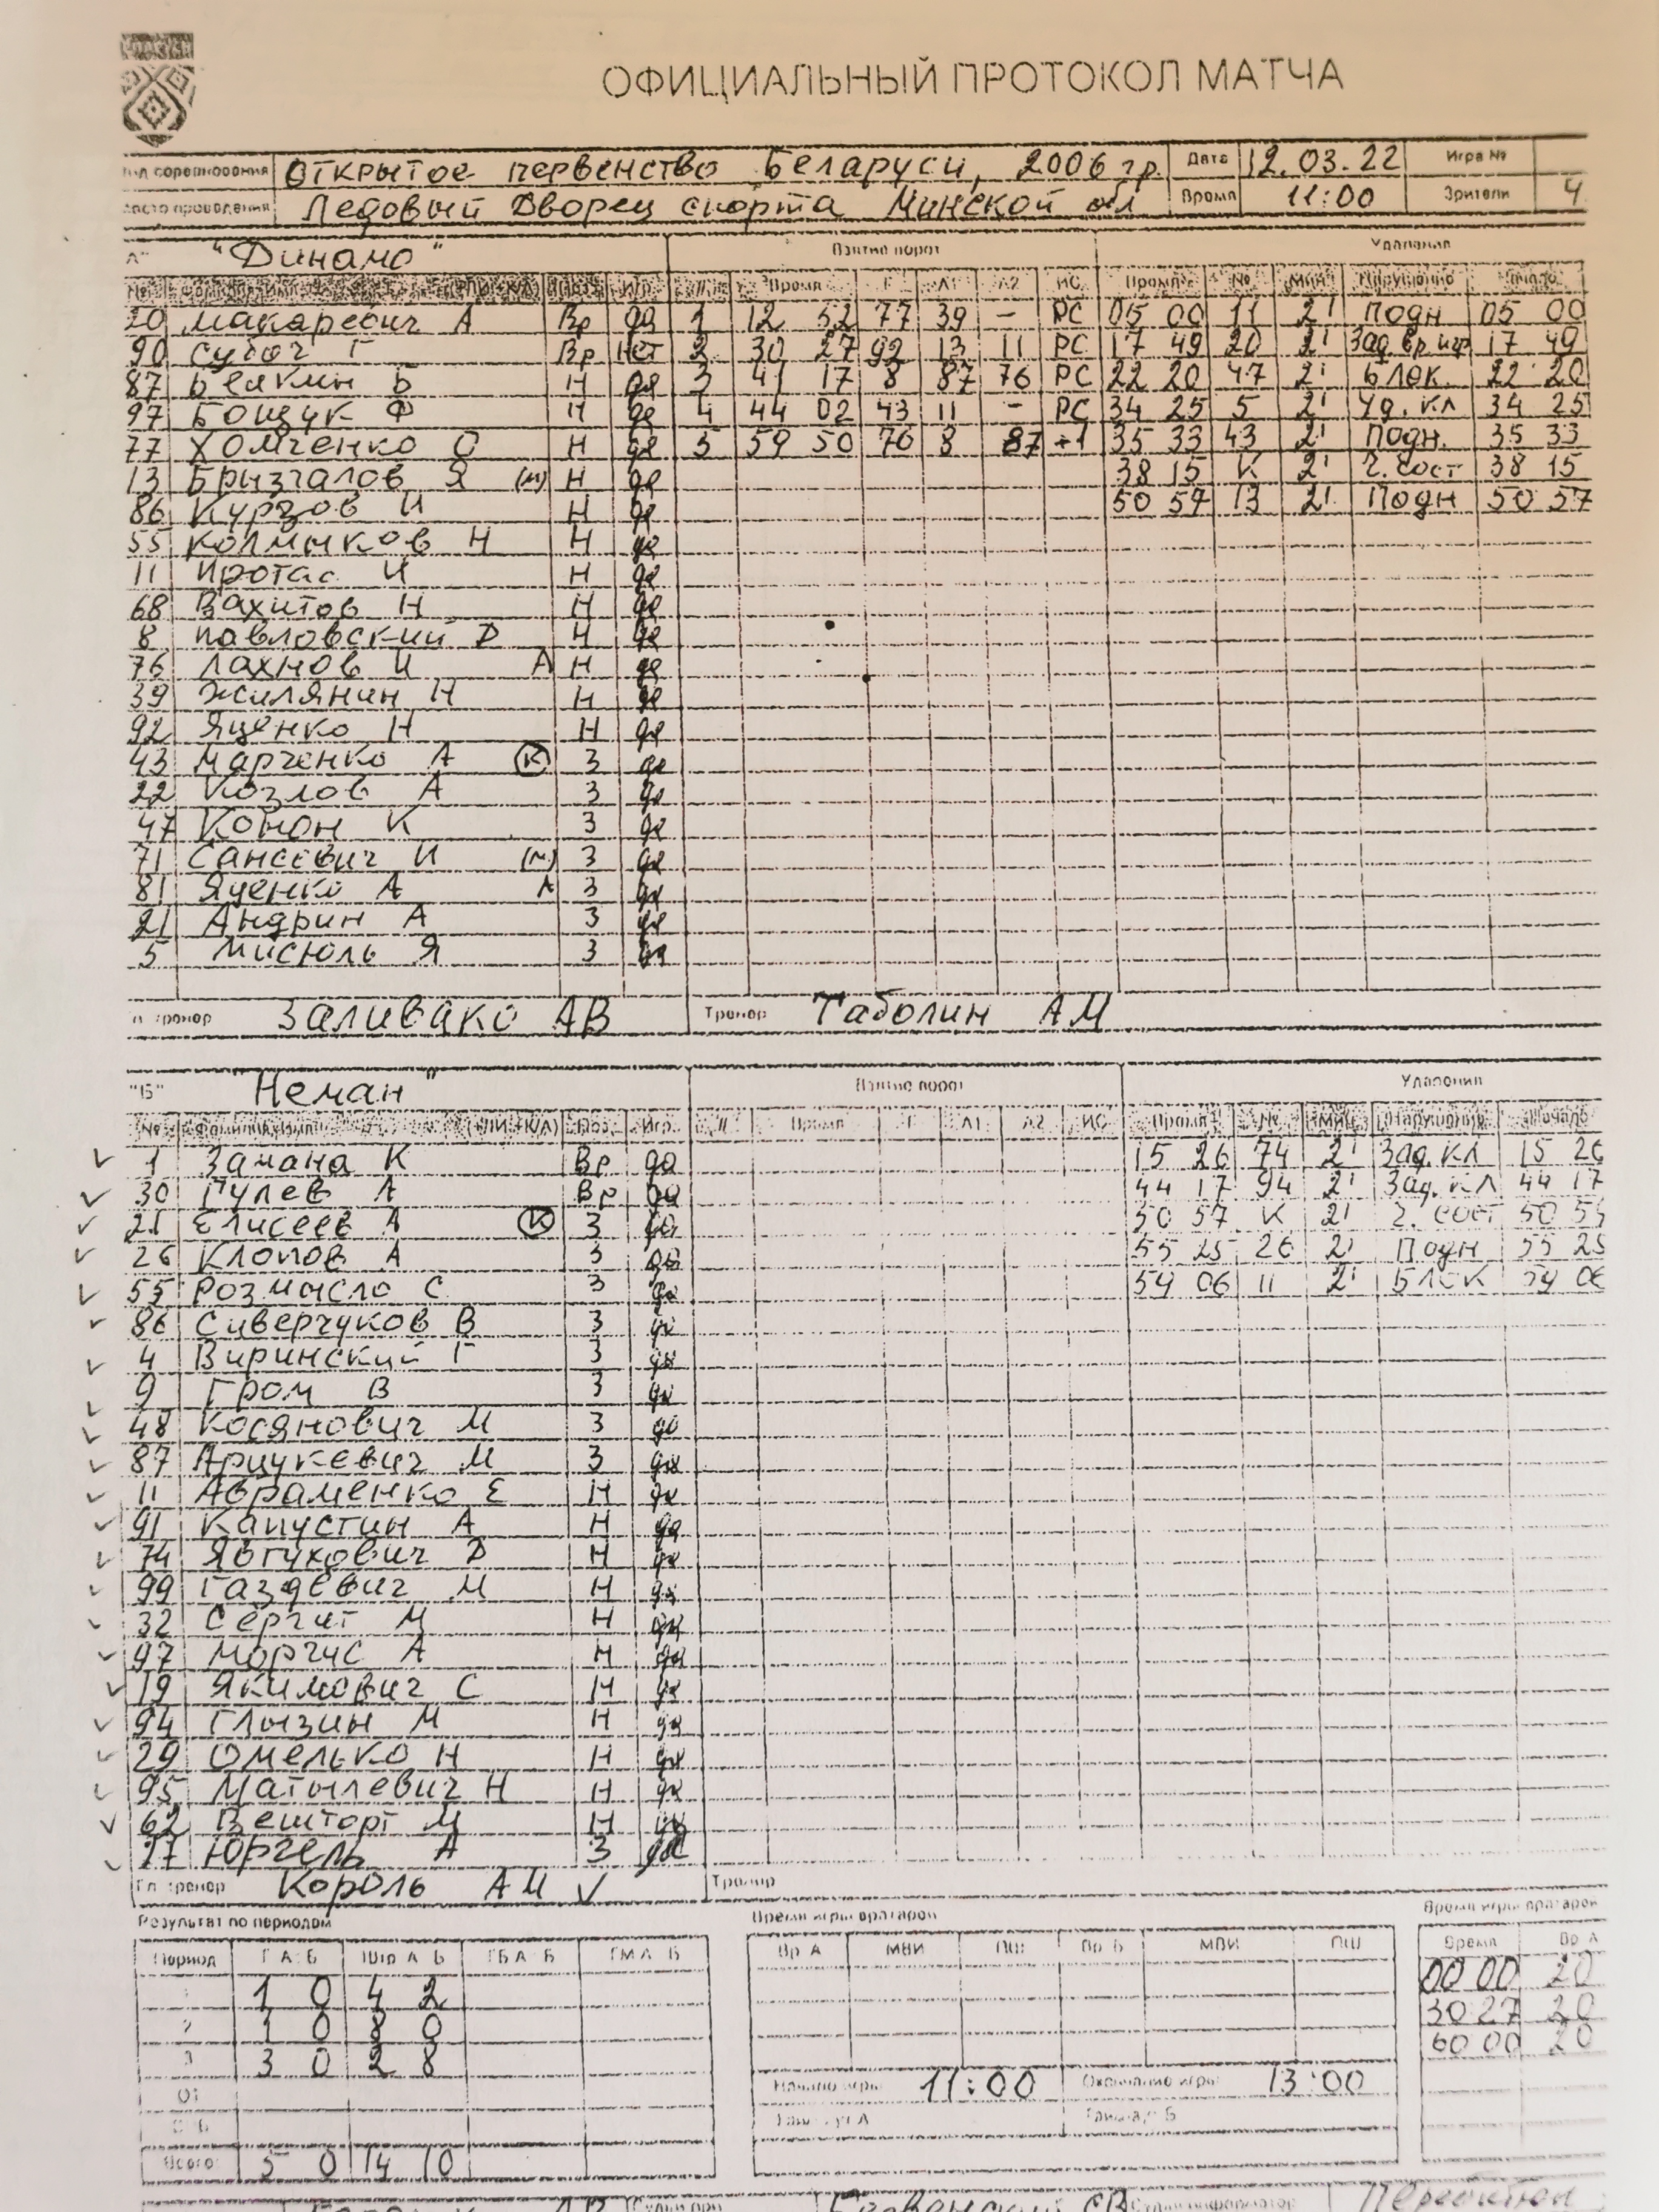 БЕЛАРУСЬ
ОФИЦИАЛЬНЫЙ ПРОТОКОЛ МАТЧА
Вид соревнования Открытое первенство Беларуси, 2006 гр. Дата 12.03.22 Игра №
Место проведения Ледовый Дворец спорта Минской обл Время 11:00 Зрители
"А" "Динамо" Взятие ворот Удаления
№ Фамилия, Имя Поз. Игр. # Время Г А1 А2 ИС Время № Мин Нарушение Начало
20 Макаревич А Вр да 1 12 52 77 39 – РС 05 00 11 2' Подн 05 00
90 Сугоч Г Вр нет 2 30 27 92 13 11 РС 17 49 20 2' Зад.вр.игр 17 49
87 Белкин Б Н да 3 41 17 8 87 76 РС 22 20 47 2' Блок. 22 20
97 Бощук Ф Н да 4 44 02 43 11 – РС 34 25 5 2' Уд. кл 34 25
77 Хомченко О Н да 5 59 50 76 8 87 +1 35 33 43 2' Подн. 35 33
13 Брызгалов Я (м) Н да 38 15 К 2' ч. сост 38 15
86 Курзов И Н да 50 57 13 2' Подн 50 57
55 Колмыков Н Н да
11 Протас И Н да
68 Вахитов Н Н да
8 Павловский Д Н да
76 Лахнов И А Н да
39 Жилянин Н Н да
92 Яценко Н Н да
43 Марченко А К З да
22 Козлов А З да
47 Конон К З да
71 Сансевич И (м) З да
81 Яценко А А З да
21 Андрин А З да
5 Мисюль Я З да
Гл. тренер Заливако АВ Тренер Таболин АМ
"Б" "Неман" Взятие ворот Удаления
№ Фамилия, Имя (К/А) Поз. Игр. # Время Г А1 А2 ИС Время № Мин Нарушение Начало
1 Замана К Вр да 15 26 74 2' Зад. кл 15 26
30 Гулев А Вр да 44 17 94 2' Зад. кл 44 17
21 Елисеев А К З да 50 57 К 2' ч. сост 50 57
26 Клопов А З да 55 25 26 2' Подн 55 25
55 Розмысло С З да 59 06 11 2' Блок 59 06
86 Сиверчуков В З да
4 Виринский Г З да
9 Гром В З да
48 Косянович М З да
87 Арцукевич М З да
11 Авраменко Е Н да
91 Капустин А Н да
74 Явтухович Д Н да
99 Газдевич М Н да
32 Сергит М Н да
97 Моргис А Н да
19 Якимович С Н да
94 Глызин М Н да
29 Омелько Н Н да
95 Матылевич Н Н да
62 Вешторт М Н да
17 Юргель А З да
Гл. тренер Король АМ Тренер
Результат по периодам Время игры вратарей Время игры вратарей
Период Г А Б Штр А Б ГБ А Б ГМ А Б Вр А МВИ ПШ Вр Б МВИ ПШ Время Вр А
1 1 0 4 2 00 00 20
2 1 0 8 0 30 27 20
3 3 0 2 8 60 00 20
ОТ Начало игры 11:00 Окончание игры 13:00
Тайм-аут А Тайм-аут Б
Всего: 5 0 14 10